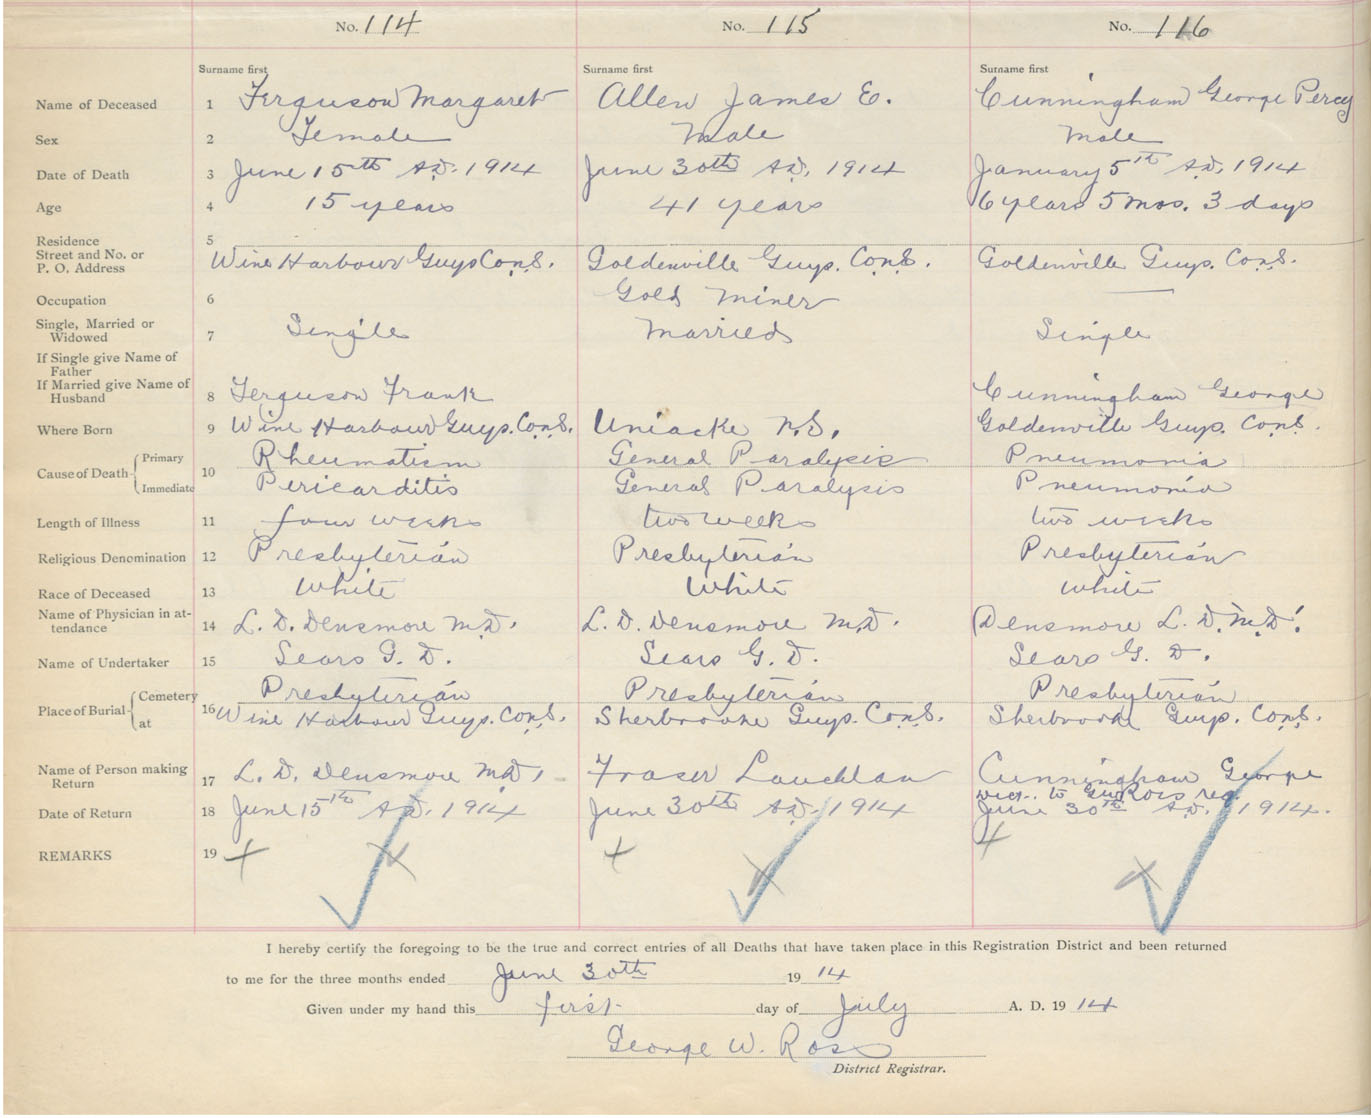 No. 114 No. 115 No. 116
Surname first Surname first Surname first
Name of Deceased 1 Ferguson Margaret Allen James E. Cunningham George Percy
Sex 2 Female Male Male
Date of Death 3 June 15th A.D. 1914 June 30th A.D. 1914 January 5th A.D. 1914
Age 4 15 years 41 years 6 years 5 mos. 3 days
Residence 5
Street and No. or
P. O. Address Wine Harbour Guys Co N.S. Goldenville Guys. Co N.S. Goldenville Guys. Co N.S.
Occupation 6 Gold Miner —
Single, Married or
Widowed 7 Single Married Single
If Single give Name of
Father
If Married give Name of
Husband 8 Ferguson Frank Cunningham George
Where Born 9 Wine Harbour Guys. Co N.S. Uniacke N.S. Goldenville Guys. Co N.S.
Cause of Death Primary Rheumatism General Paralysis Pneumonia
10
Immediate Pericarditis General Paralysis Pneumonia
Length of Illness 11 four weeks two weeks two weeks
Religious Denomination 12 Presbyterian Presbyterian Presbyterian
Race of Deceased 13 White White White
Name of Physician in at-
tendance 14 L. D. Densmore M.D. L. D. Densmore M.D. Densmore L. D. M.D.
Name of Undertaker 15 Sears G. D. Sears G. D. Sears G. D.
Place of Burial Cemetery Presbyterian Presbyterian Presbyterian
at 16 Wine Harbour Guys. Co N.S. Sherbrooke Guys. Co N.S. Sherbrooke Guys. Co N.S.
Name of Person making
Return 17 L. D. Densmore M.D. Fraser Lauchlan Cunningham George
to Ross reg.
Date of Return 18 June 15th A.D. 1914 June 30th A.D. 1914 June 30th A.D. 1914.
REMARKS 19
I hereby certify the foregoing to be the true and correct entries of all Deaths that have taken place in this Registration District and been returned
to me for the three months ended June 30th 1914
Given under my hand this first day of July A. D. 1914
George W. Ross
District Registrar.